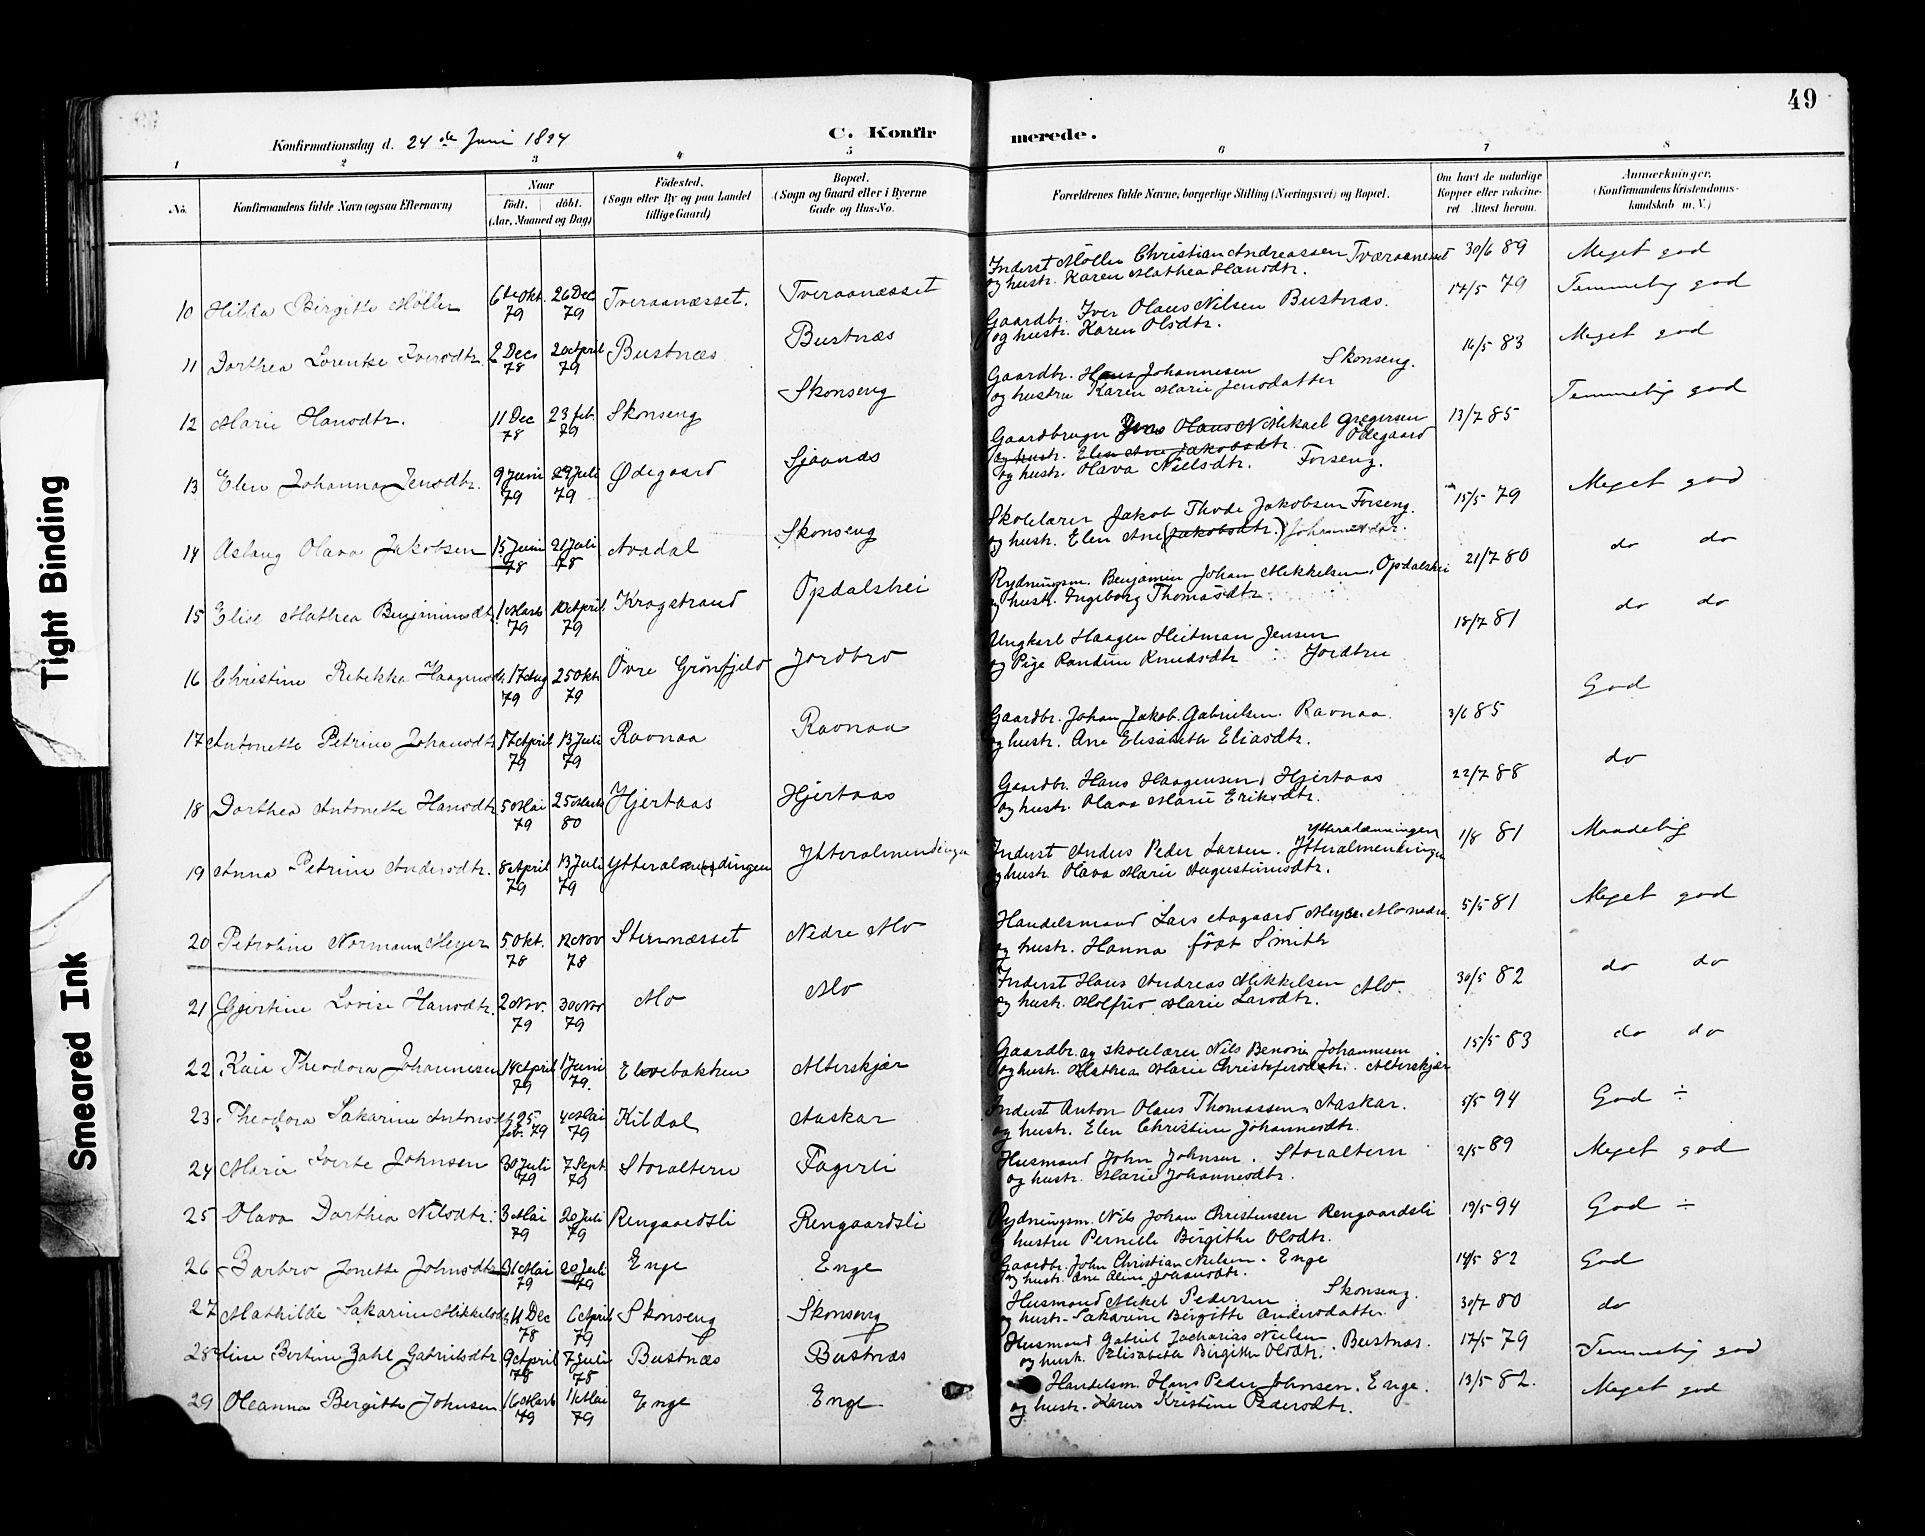 49
Konfirmationsdag d. 24de Juni 1894
C. Konfirmerede.
1 2 3 4 5 6 7 8
No.
Konfirmandens fulde Navn (ogsaa Efternavn)
Naar
födt. döbt.
(Aar, Maaned og Dag)
Födested.
(Sogn eller By og paa Landet
tillige Gaard)
Bopæl.
(Sogn og Gaard eller i Byerne
Gade og Hus-No.
Forældrenes fulde Navne, borgerlige Stilling (Næringsvei) og Bopæl.
Om havt de naturlige
Kopper eller vakcine-
ret Attest herom.
Anmærkninger.
(Konfirmandens Kristendoms-
kundskab m. V.)
10 Hilda Birgitte Möller 6te Okt. 79 26 Dec 79 Tveraanæsset. Tveraanæsset
Inderst Möller Christian Andreassen Tværaanesset
og hustr. Karen Mathea Hansdtr. 30/6 89 Meget god
11 Dorthea Lorentse Iversdtr. 2 Dec 78 20 April 79 Bustnæs Bustnæs
Gaardbr. Iver Olaus Nilsen Bustnæs.
og hustr. Karen Olsdtr. 14/5 79 Temmelig god
12 Marie Hansdtr. 11 Dec 78 23 feb. 79 Skonseng Skonseng
Gaardbr. Hans Johannesen Skonseng.
og hustru Karen Marie Jensdatter 16/5 83 Meget god
13 Elen Johanna Jensdtr. 9 Juni 79 29 Juli 79 Ødegaard Sjaanæs
Gaardbruger Jens Olaus N Mikael Gregersen
og hustr. Elen Ane Jakobsdtr. Ödegaard
og hustr. Olava Nielsdtr. Forseng. 13/7 85 Temmelig god
14 Aslaug Olava Jakobsen 15 Juni 78 21 Juli 78 Avadal Skonseng
Skolelærer Jakob Thode Jakobsen Forseng.
og hustr. Elen Ane (Jakobsdtr.) Johannesdtr. 15/5 79 Meget god
15 Elise Mathea Benjaminsdtr. 1 Marts 79 10 April 79 Kragstrand Opdalshei
Rydningsm. Benjamin Johan Mikkelsen, Opdalshei
og hustr. Ingeborg Thomasdtr. 21/7 80 do do
16 Christine Rebekka Haagensdtr. 17 Aug 79 25 Okt. 79 Övre Grönfjeld Jordbro
Ungkarl Haagen Heitman Jensen
og Pige Randine Knudsdtr Jordbru 18/7 81 do do
17 Antonette Petrine Johansdtr 17 April 79 13 Juli 79 Ravnaa Ravnaa
Gaardbr. Johan Jakob Gabrielsen. Ravnaa.
og hustr. Ane Elisabeth Eliasdtr. 3/6 85 God
18 Dorthea Antonette Hansdtr 5 Mai 79 25 Marts 80 Hjertaas Hjertaas
Gaardbr. Hans Haagensen, Hjertaas
og hustr. Olava Marie Eriksdtr. 22/7 88 do
19 Anna Petrine Andersdtr. 8 April 79 13 Juli 79 Ytteralmendingen Ytteralmendingen
Ytteralmenningen
Inderst Anders Peder Larsen. Ytteralmenningen
og hustr. Olava Marie Augustinusdtr. 1/8 81 Maadelig
20 Petroline Normann Meyer 5 Okt. 78 12 Nov 78 Stennæsset Nedre Mo
Handelsmand Lars Aagaard Meyer. Mo nedre.
og hustr. Hanna född Smith 5/5 81 Meget god
21 Gjertine Lovise Hansdtr. 2 Nov. 79 30 Nov 79 Mo Mo
Inderst Hans Andreas Mikkelsen Mo.
og hustr. Molfrid Marie Larsdtr. 30/5 82 do do
22 Kaia Theodora Johannesen 14 April 79 1 Juni 79. Elvebakken Alterskjær
Gaardbr. og skolelærer Nils Benoni Johannesen
og hustr. Mathea Marie Christofersdatr. Alterskjær 15/5 83 do do
23 Theodora Sakarine Antonsdtr. 25 feb. 79 4 Mai 79 Kildal Aaskar
Inderst Anton Olaus Thomassen, Aaskar.
og hustr. Elen Christine Johannesdtr. 5/5 94 God ÷
24 Marie Iverte Johnsen 30 Juli 79 7 Sept. 79 Storaltern Fagerli
Husmand John Johnsen. Storaltern
og hustr. Marie Johannesdtr. 2/5 89 Meget god
25 Olava Dorthea Nilsdtr. 3 Mai 79 20 Juli 79 Rengaardsli Rengaardsli
Rydningsm. Nils Johan Christensen Rengaardsli
og hustru Pernille Birgithe Olsdtr. 19/5 94 God ÷
26 Barbro Jonette Johnsdtr. 31 Mai 79 20 Juli 79 Enge Enge
Gaardbr. John Christian Nielsen. Enge
og hustr. Ane Aline Johansdtr. 14/5 82 God
27 Mathilde Sakarine Mikkelsdtr 11 Dec 78 6 April 79 Skonseng Skonseng
Husmand Mikel Pedersen. Skonseng.
og hustr. Sakarine Birgitte Andersdatter 30/7 80 do
28 Line Bertine Zahl Gabrielsdtr 9 April 78 7 Juli 78 Bustnæs Bustnæs
Husmand Gabriel Zacharias Nielsen. Bustnæs.
og hustr. Elisabeth Birgitte Olsdtr. 17/5 79 Temmelig god
29 Oleanna Bergitte Johnsen 16 Marts 79 11 Mai 79 Enge Enge
Handelsm. Hans Peder Johnsen. Enge.
og hustr. Karen Kristine Pedersdtr. 13/5 82. Meget god
Tight Binding
Smeared Ink